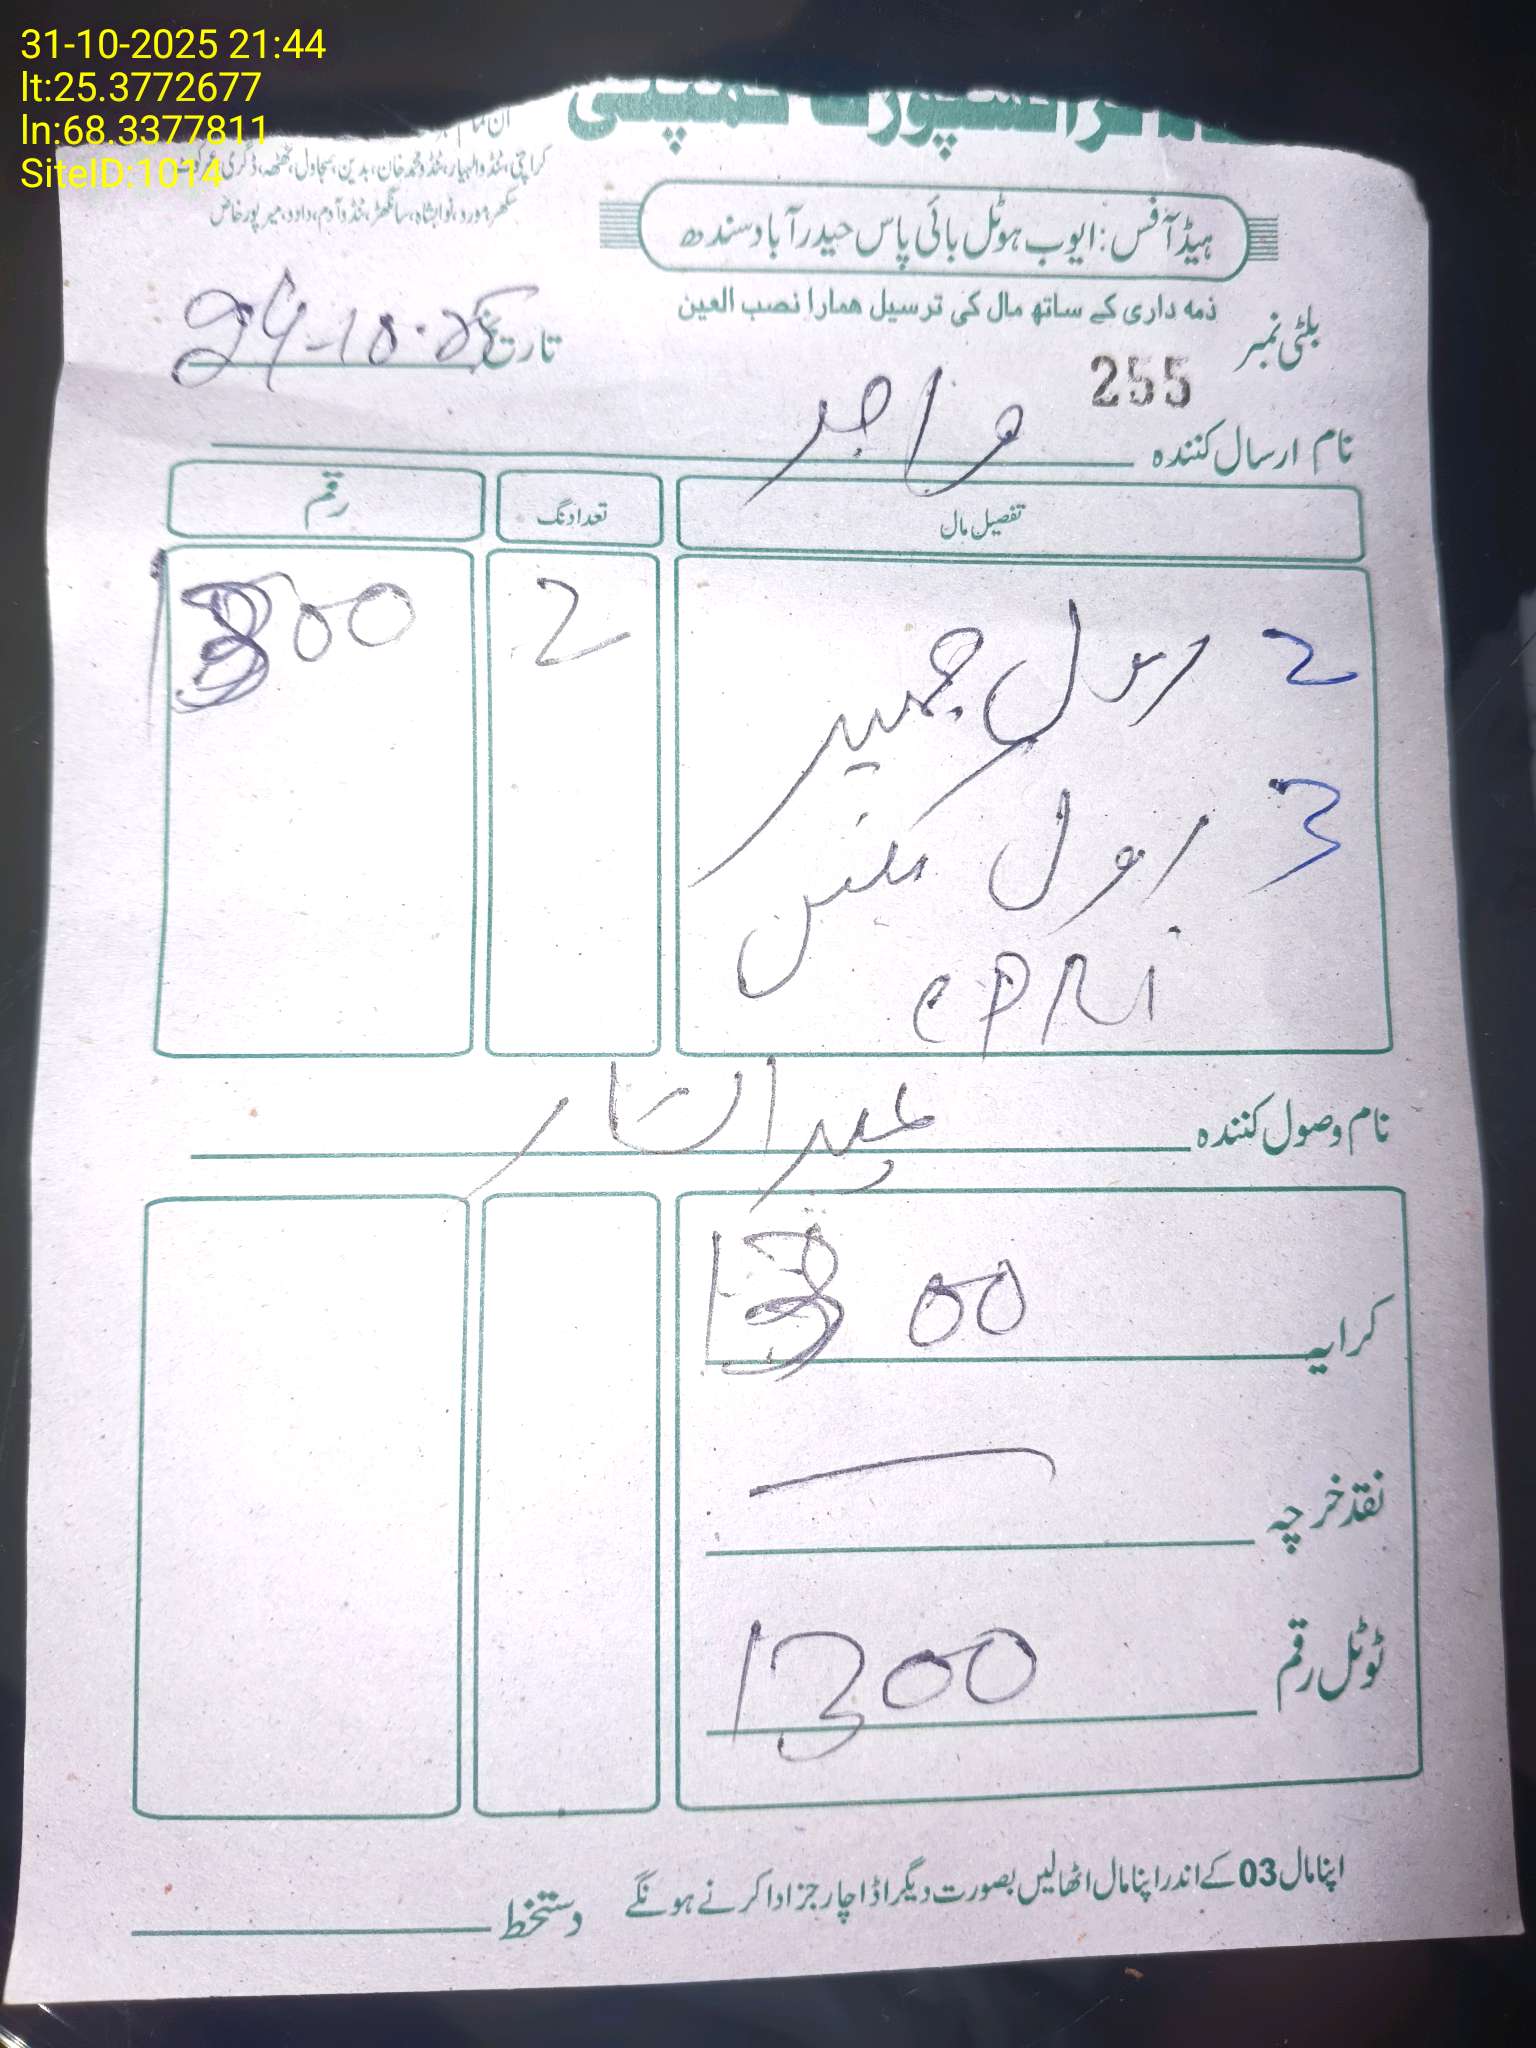 31-10-2025 21:44
lt:25.3772677
ln:68.3377811
SiteID:1014
ٹرانسپورٹ کمپنی
کراچی، ٹنڈوالہیار، ٹنڈو محمد خان، بدین، سجاول، ٹھٹھہ، ڈگری
سکھر، مورو، نوابشاہ، سانگھڑ، ٹنڈوآدم، دادو، میرپورخاص
ہیڈ آفس: ایوب ہوٹل بائی پاس حیدرآباد سندھ
ذمہ داری کے ساتھ مال کی ترسیل ہمارا نصب العین
بلٹی نمبر 255
تاریخ 24-10-25
نام ارسال کنندہ واجد
تفصیل مال تعداد نگ رقم
2 رول 2 1300
3 رول
نام وصول کنندہ
کرایہ 1300
نقد خرچہ
ٹوٹل رقم 1300
اپنا مال 03 کے اندر اپنا مال اٹھالیں بصورت دیگر اڈا چارجز ادا کرنے ہونگے
دستخط